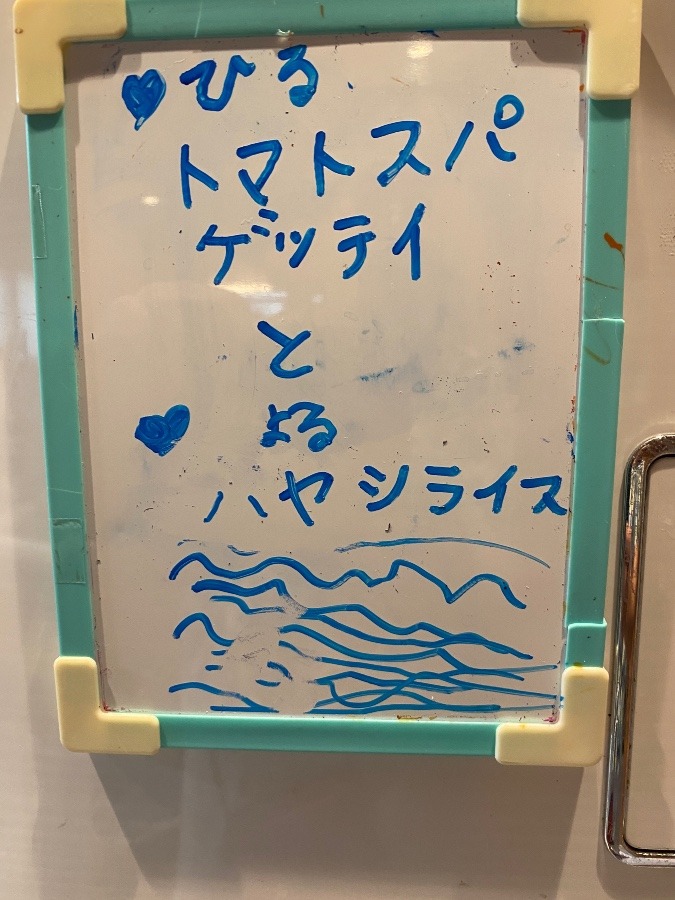 ♥ひる
トマトスパ
ゲッティ
と
♥よる
ハヤシライス